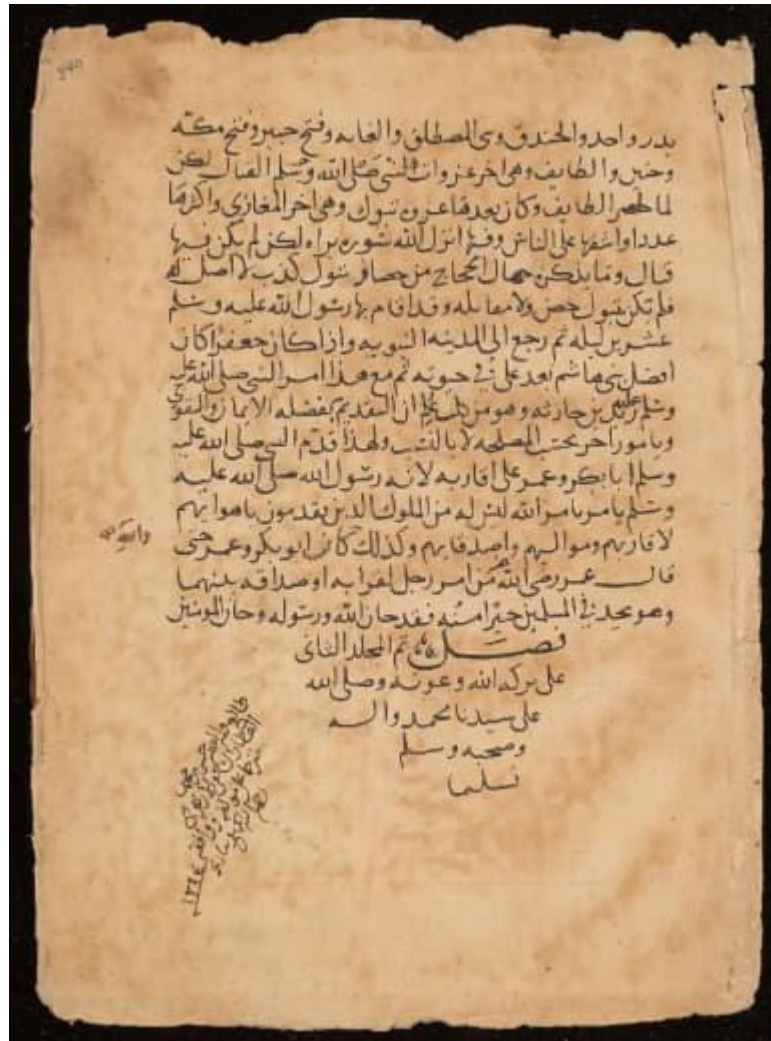 بدر واحد والخندق وبى المصطلق والغابه وفتح خيبر وفتح مكه
وحنين والطايف وهى اخر غزوات النبى صلى الله وسلم القتال لكن
لما حصر الطايف وكان بعدها غزوه تبوك وهى اخر المغازى واكثرها
عددا واشقها على الناس وفيها انزل الله سوره براه لكن لم يكن فيها
قتال وما يذكر جهال الحجاج من حصار تبوك كذب لا اصل له
فلم يكن بتبوك حصن ولا مقاتله وقد اقام بها رسول الله عليه وسلم
عشرين ليله ثم رجع الى المدينه النبويه واذا كان جعفر اكان
افضل بنى هاشم بعد على فى حيوته ثم مع هذا امر النبى صلى الله عليه
وسلم زيد بن حارثه وهو من كلب عليه ان التقديم بفضيله الايمان والتقوى
وبامور اخر بحسب المصلحه لا بالنسب ولهذا قدم النبى صلى الله عليه
وسلم ابا بكر وعمر على اقاربه لانه رسول الله صلى الله عليه
وسلم يامر بامر الله ليس له من الملوك الذين يقدمون باهوايهم
لاقاربهم ومواليهم واصدقايهم وكذلك كان ابو بكر وعمر حتى
قال عمر رضى الله من امر رجل لقرابه او صداقه بينهما
وهو يجد فى المسلمين خيرا منه فقد خان الله ورسوله وخان المومنين
فصل تم المجلد الثانى
على بركه الله وعونه وصلى الله
على سيدنا محمد واله
وصحبه وسلم
تسليما